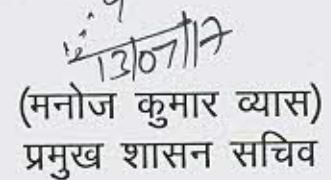 13/07/17
(मनोज कुमार व्यास)
प्रमुख शासन सचिव